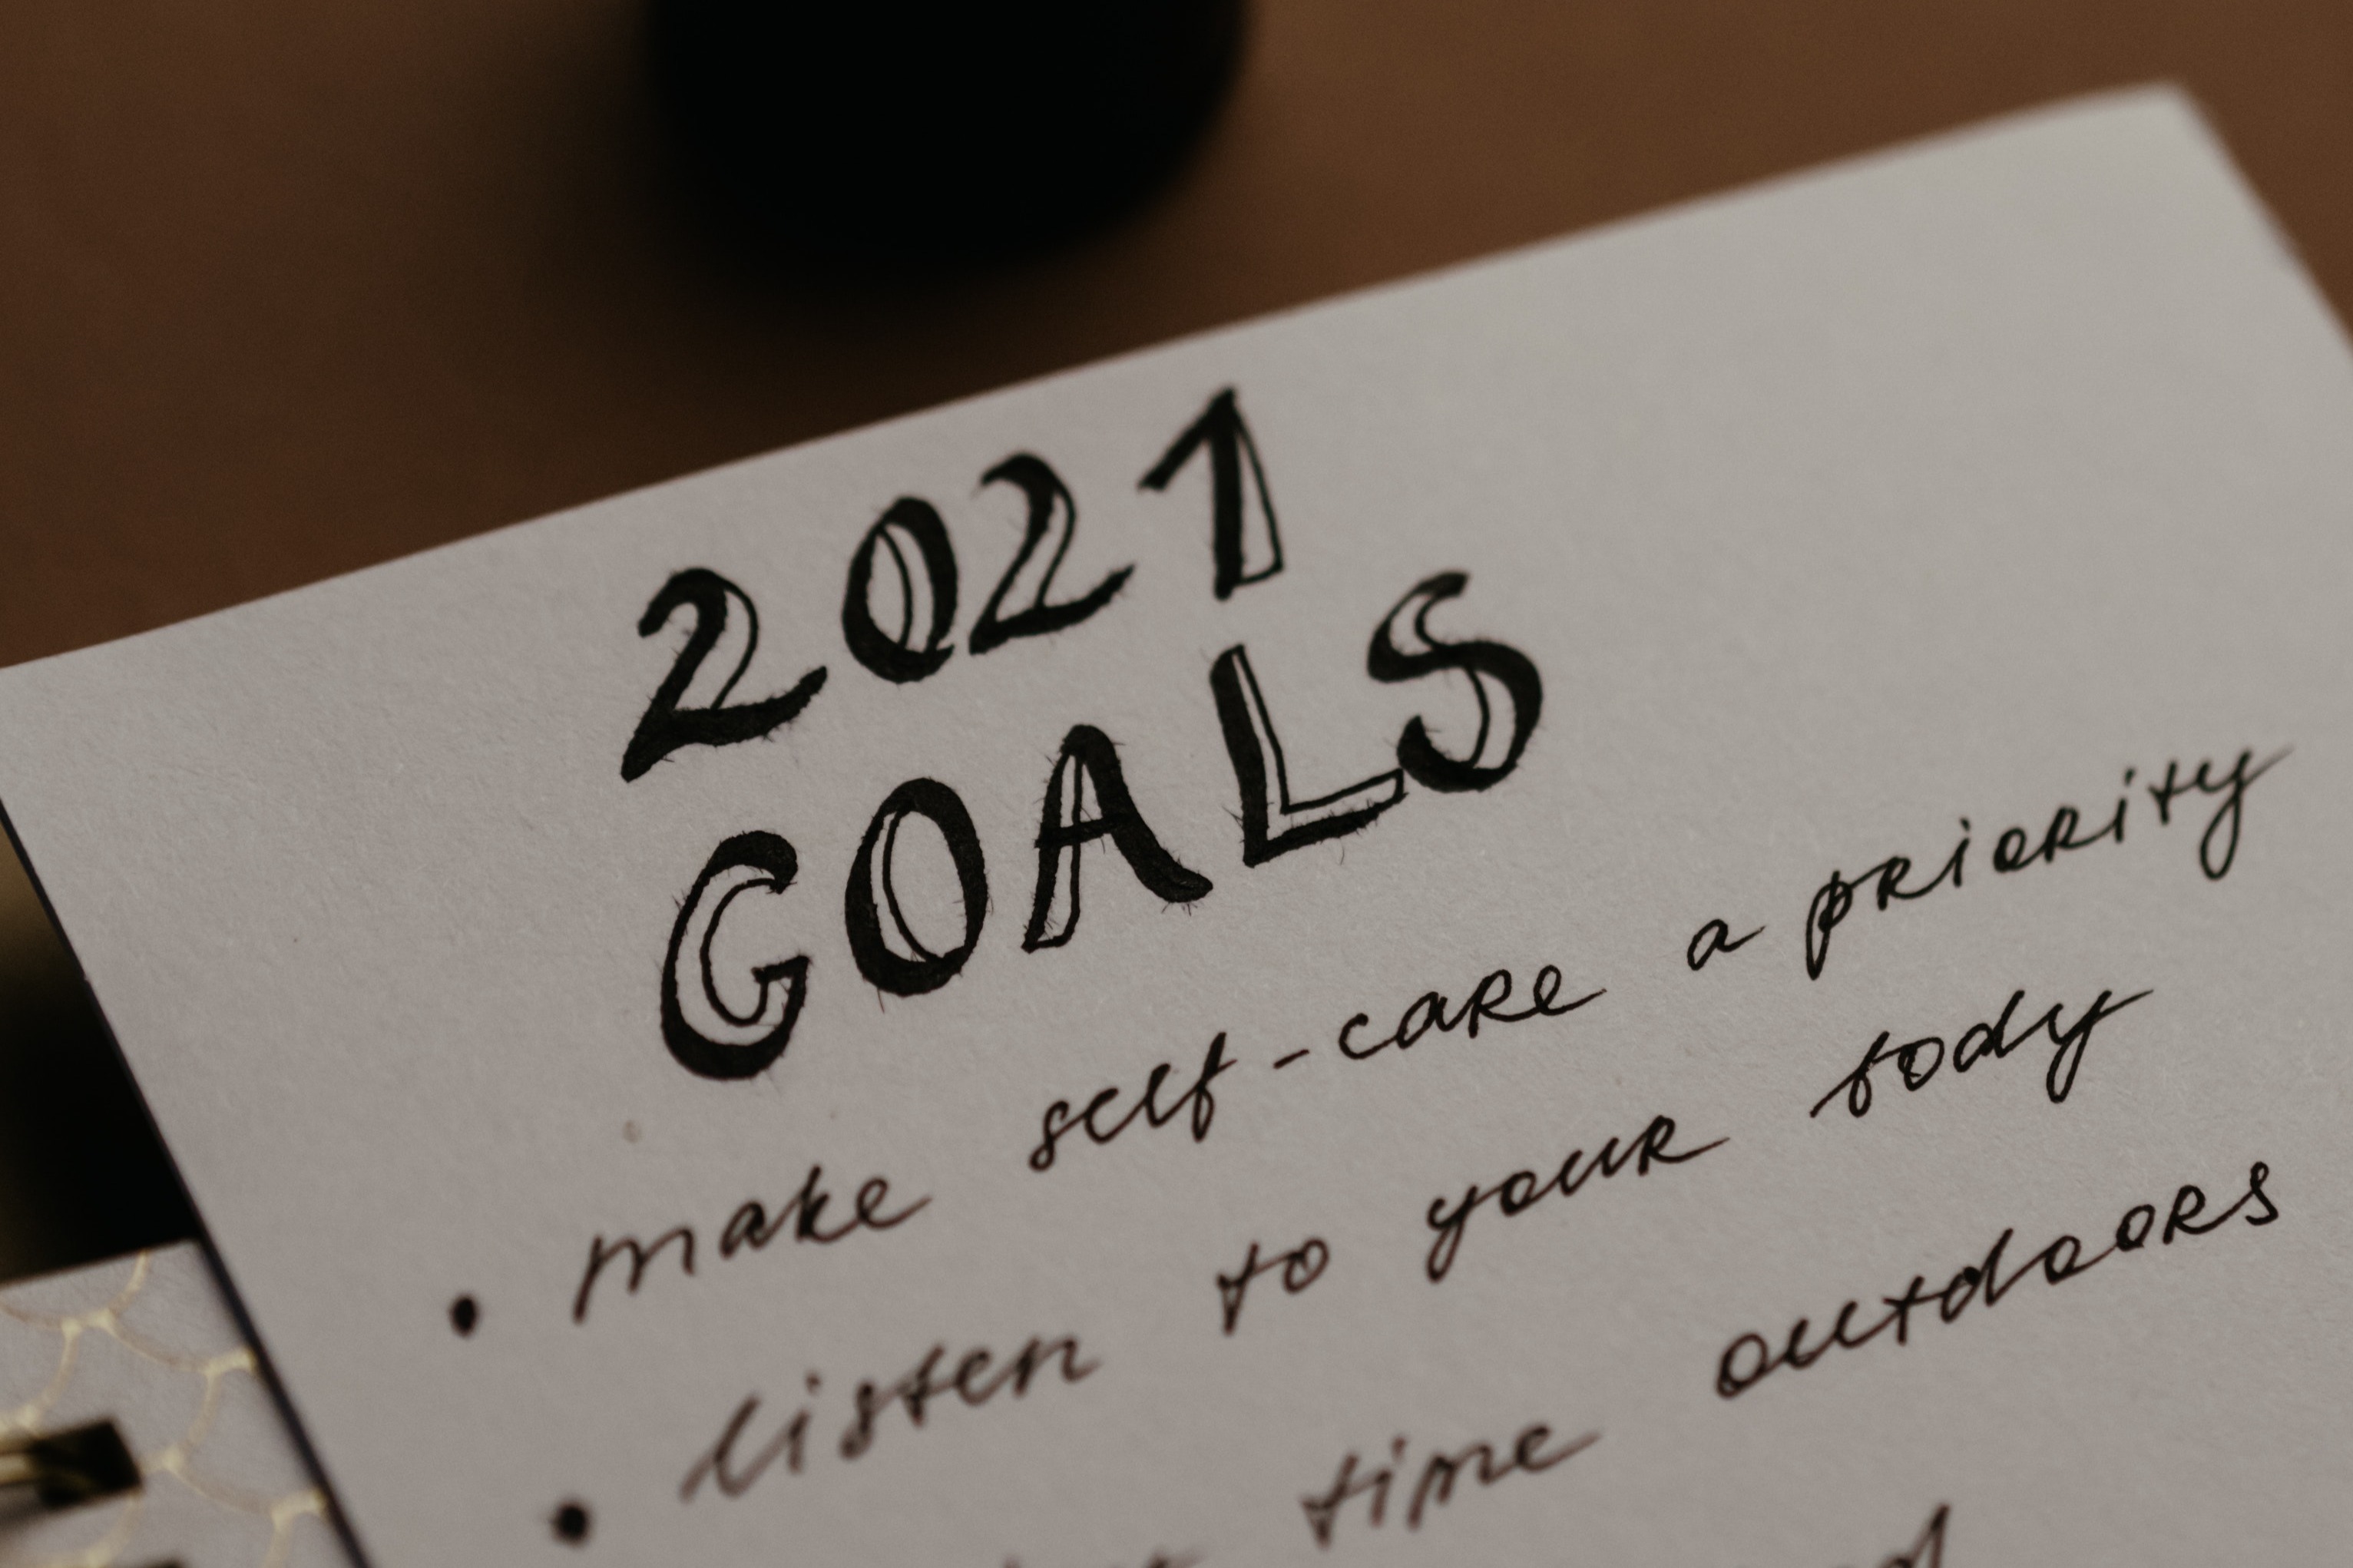 2021
GOALS
• make self-care a priority
• listen to your body
time outdoors